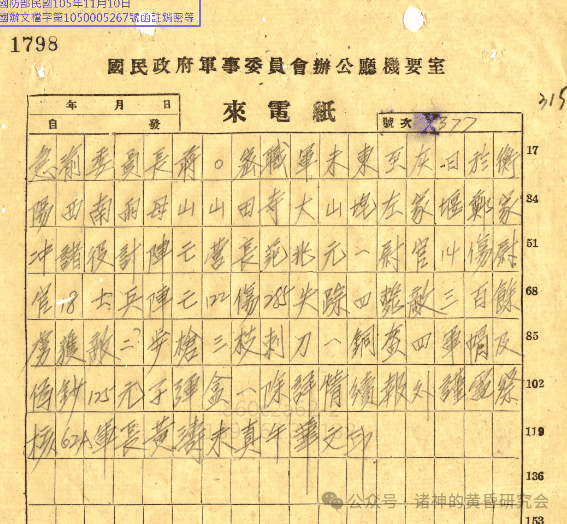 國防部民國105年11月10日
國辦文檔字第1050005267號函註銷密等
1798
國民政府軍事委員會辦公廳機要室
年 月 日
自 發
來電紙
號次 377
315
急渝委員長蔣。務職軍未東至灰日於衡 17
陽西南雨母山山田寺大山堍左家堰鄭家 34
冲諸役計陣亡營長范兆元一尉官14傷尉 51
官18士兵陣亡122傷285失踪四斃敵三百餘 68
虜獲敵二步槍三枝刺刀一鋼盔四軍帽及 85
偽鈔125元子彈盒一除詳情續報外謹電察 102
核62A軍長黃濤未真午華文印 119
136
153
公众号・诸神的黄昏研究会